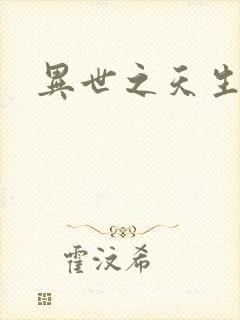 異世之天生
霍汶希